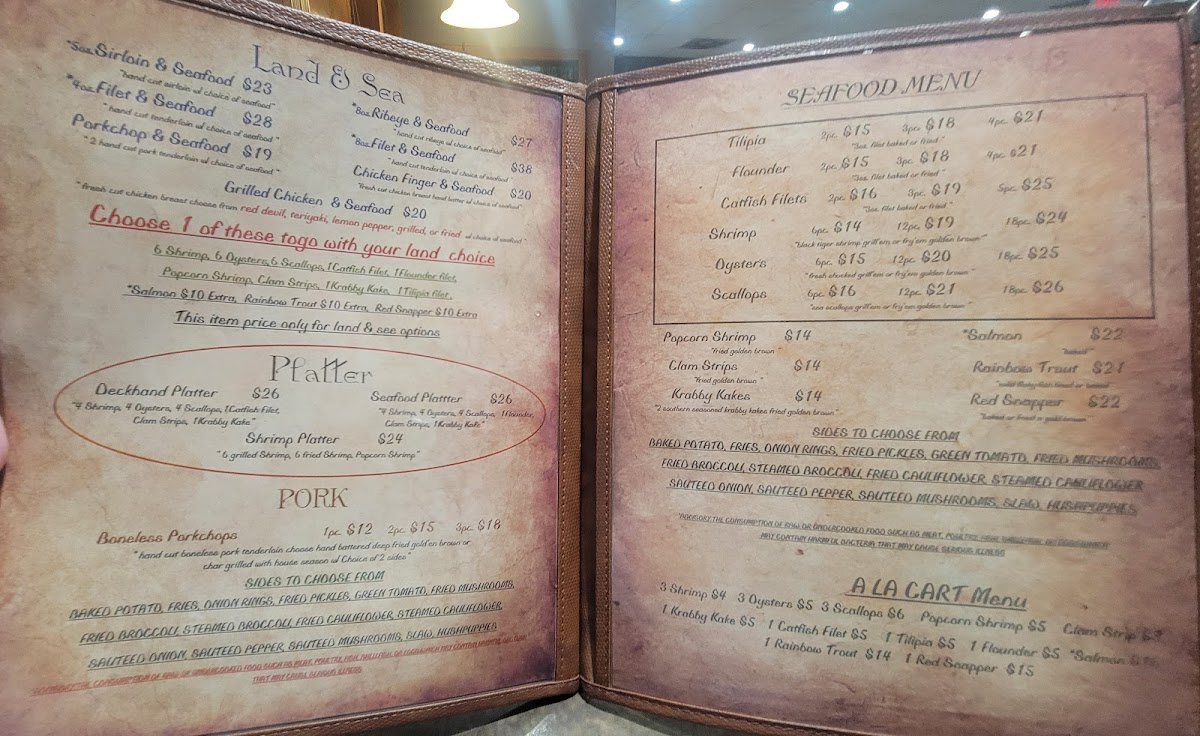 Land & Sea
*5oz. Sirloin & Seafood $23
"hand cut sirloin w/ choice of seafood"
*4oz. Filet & Seafood $28
"hand cut tenderloin w/ choice of seafood"
Porkchop & Seafood $19
"2 hand cut pork tenderloin w/ choice of seafood"
*8oz. Ribeye & Seafood $27
"hand cut ribeye w/ choice of seafood"
*8oz. Filet & Seafood $38
"hand cut tenderloin w/ choice of seafood"
Chicken Finger & Seafood $20
"fresh cut chicken breast hand batter w/ choice of seafood"
Grilled Chicken & Seafood $20
"fresh cut chicken breast choose from red devil, teriyaki, lemon pepper, grilled, or fried w/ choice of seafood"
Choose 1 of these togo with your land choice
6 Shrimp, 6 Oysters, 6 Scallops, 1 Catfish Filet, 1 Flounder filet,
Popcorn Shrimp, Clam Strips, 1 Krabby Kake, 1 Tilipia filet,
*Salmon $10 Extra, Rainbow Trout $10 Extra, Red Snapper $10 Extra
This item price only for land & see options
Platter
Deckhand Platter $26
"4 Shrimp, 4 Oysters, 4 Scallops, 1 Catfish Filet,
Clam Strips, 1 Krabby Kake"
Seafood Platter $26
"4 Shrimp, 4 Oysters, 4 Scallops, 1 Flounder,
Clam Strips, 1 Krabby Kake"
Shrimp Platter $24
"6 grilled Shrimp, 6 fried Shrimp, Popcorn Shrimp"
PORK
Boneless Porkchops 1pc. $12 2pc. $15 3pc. $18
"hand cut boneless pork tenderloin choose hand battered deep fried golden brown or
char grilled with house season w/ Choice of 2 sides"
SIDES TO CHOOSE FROM
BAKED POTATO, FRIES, ONION RINGS, FRIED PICKLES, GREEN TOMATO, FRIED MUSHROOMS,
FRIED BROCCOLI, STEAMED BROCCOLI, FRIED CAULIFLOWER, STEAMED CAULIFLOWER,
SAUTEED ONION, SAUTEED PEPPER, SAUTEED MUSHROOMS, SLAW, HUSHPUPPIES
THAT MAY CAUSE SERIOUS ILLNESS
SEAFOOD MENU
Tilipia 2pc. $15 3pc. $18 4pc. $21
"7oz. filet baked or fried"
Flounder 2pc. $15 3pc. $18 4pc. $21
"7oz. filet baked or fried"
Catfish Filets 2pc. $16 3pc. $19 5pc. $25
"7oz. filet baked or fried"
Shrimp 6pc. $14 12pc. $19 18pc. $24
"black tiger shrimp grill'em or fry'em golden brown"
Oysters 6pc. $15 12pc. $20 18pc. $25
"fresh shucked grill'em or fry'em golden brown"
Scallops 6pc. $16 12pc. $21 18pc. $26
"sea scallops grill'em or fry'em golden brown"
Popcorn Shrimp $14
"fried golden brown"
Clam Strips $14
"fried golden brown"
Krabby Kakes $14
"2 southern seasoned krabby kakes fried golden brown"
*Salmon $22
"baked"
Rainbow Trout $21
Red Snapper $22
"baked or fried n gold brown"
SIDES TO CHOOSE FROM
BAKED POTATO, FRIES, ONION RINGS, FRIED PICKLES, GREEN TOMATO, FRIED MUSHROOMS,
FRIED BROCCOLI, STEAMED BROCCOLI, FRIED CAULIFLOWER, STEAMED CAULIFLOWER
SAUTEED ONION, SAUTEED PEPPER, SAUTEED MUSHROOMS, SLAW, HUSHPUPPIES
THE CONSUMPTION OF RAW OR UNDERCOOKED FOOD SUCH AS MEAT, POULTRY, FISH, SHELLFISH, OR EGGS WHICH
MAY CONTAIN HARMFUL BACTERIA THAT MAY CAUSE SERIOUS ILLNESS
A LA CART Menu
3 Shrimp $4 3 Oysters $5 3 Scallops $6 Popcorn Shrimp $5 Clam Strip
1 Krabby Kake $5 1 Catfish Filet $5 1 Tilipia $5 1 Flounder $5 *Salmon
1 Rainbow Trout $14 1 Red Snapper $15